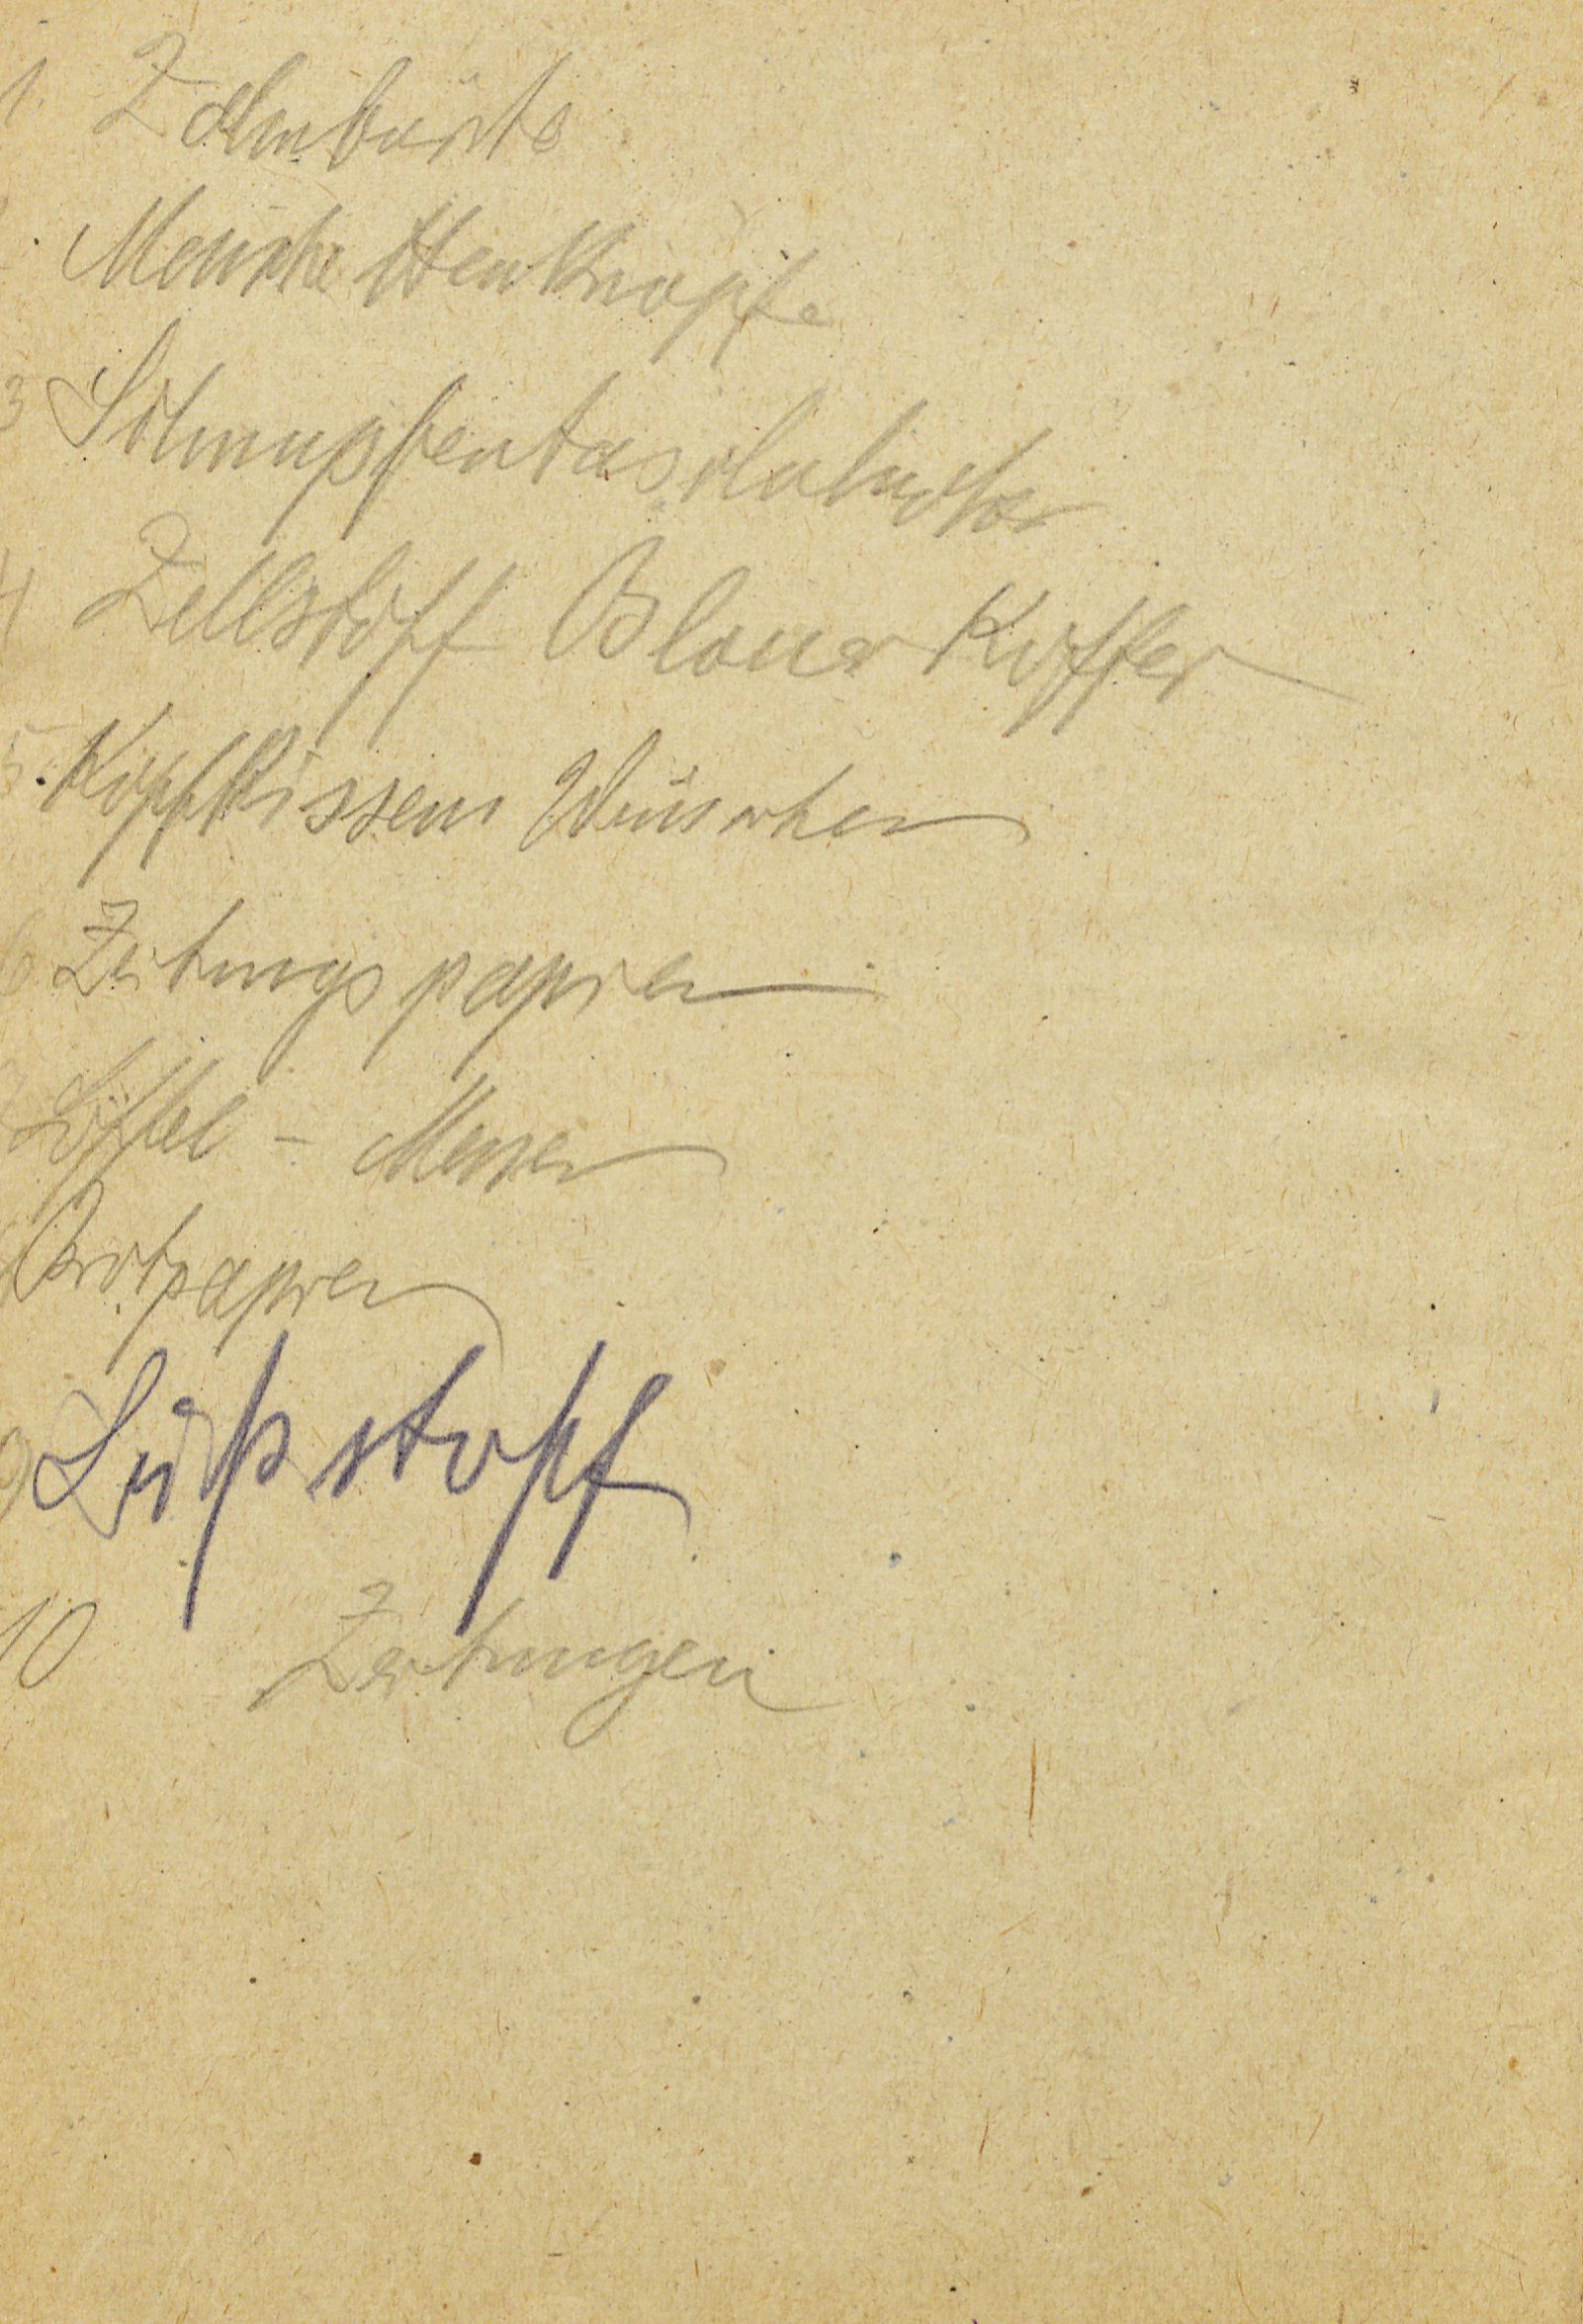 1. Zahnbürste
Manschettenknöpfe
3 Schnupfentaschentücher
4 Zellstoff Blauer Koffer
5. Kopfkissen
6 Zeitungspapier
Löffel - Messer
Brotpapier
9
10 Zeitungen